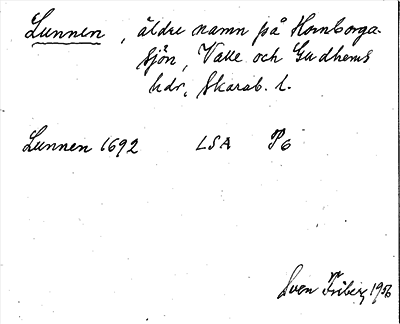 Lunnen, äldre namn på Hornborga-
sjön, Valle och Gudhems
hdr, Skarab. l.
Lunnen 1692 LSA P6
Sven Friberg 1956